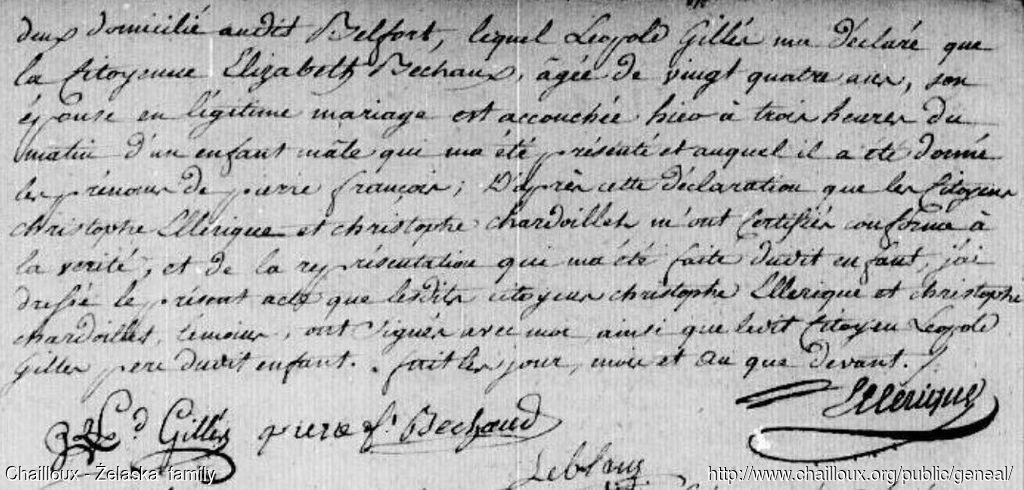 deux domicilié audit Belfort, lequel Leopold Gillés m'a déclaré que
la Citoyenne Elizabeth Bechaux, âgée de vingt quatre ans, son
épouse en légitime mariage est accouchée hier à trois heures du
matin d'un enfant mâle qui m'a été présenté et auquel il a été donné
les prénoms de pierre françois; D'après cette déclaration que les Citoyens
christophe Ellerique et christophe chardoillet m'ont Certifiés conforme à
la verité, et de la représentation qui m'a été faite dudit enfant, j'ai
dressé le présent acte que lesdits citoyens christophe Ellerique et christophe
chardoillet, témoins, ont Signés avec moi ainsi que ledit Citoyen Leopold
Gilles pere dudit enfant. fait les jour, mois et an que devant.
Ellerique
Ld Gillés Bechaud
Leblanc
Chailloux - Želaska family
http://www.chailloux.org/public/geneal/